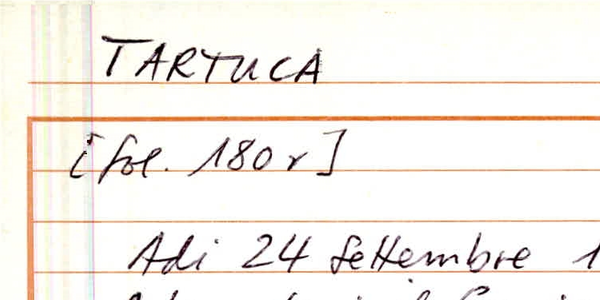 TARTUCA
[fol. 180 r]
Adi 24 Settembre 1